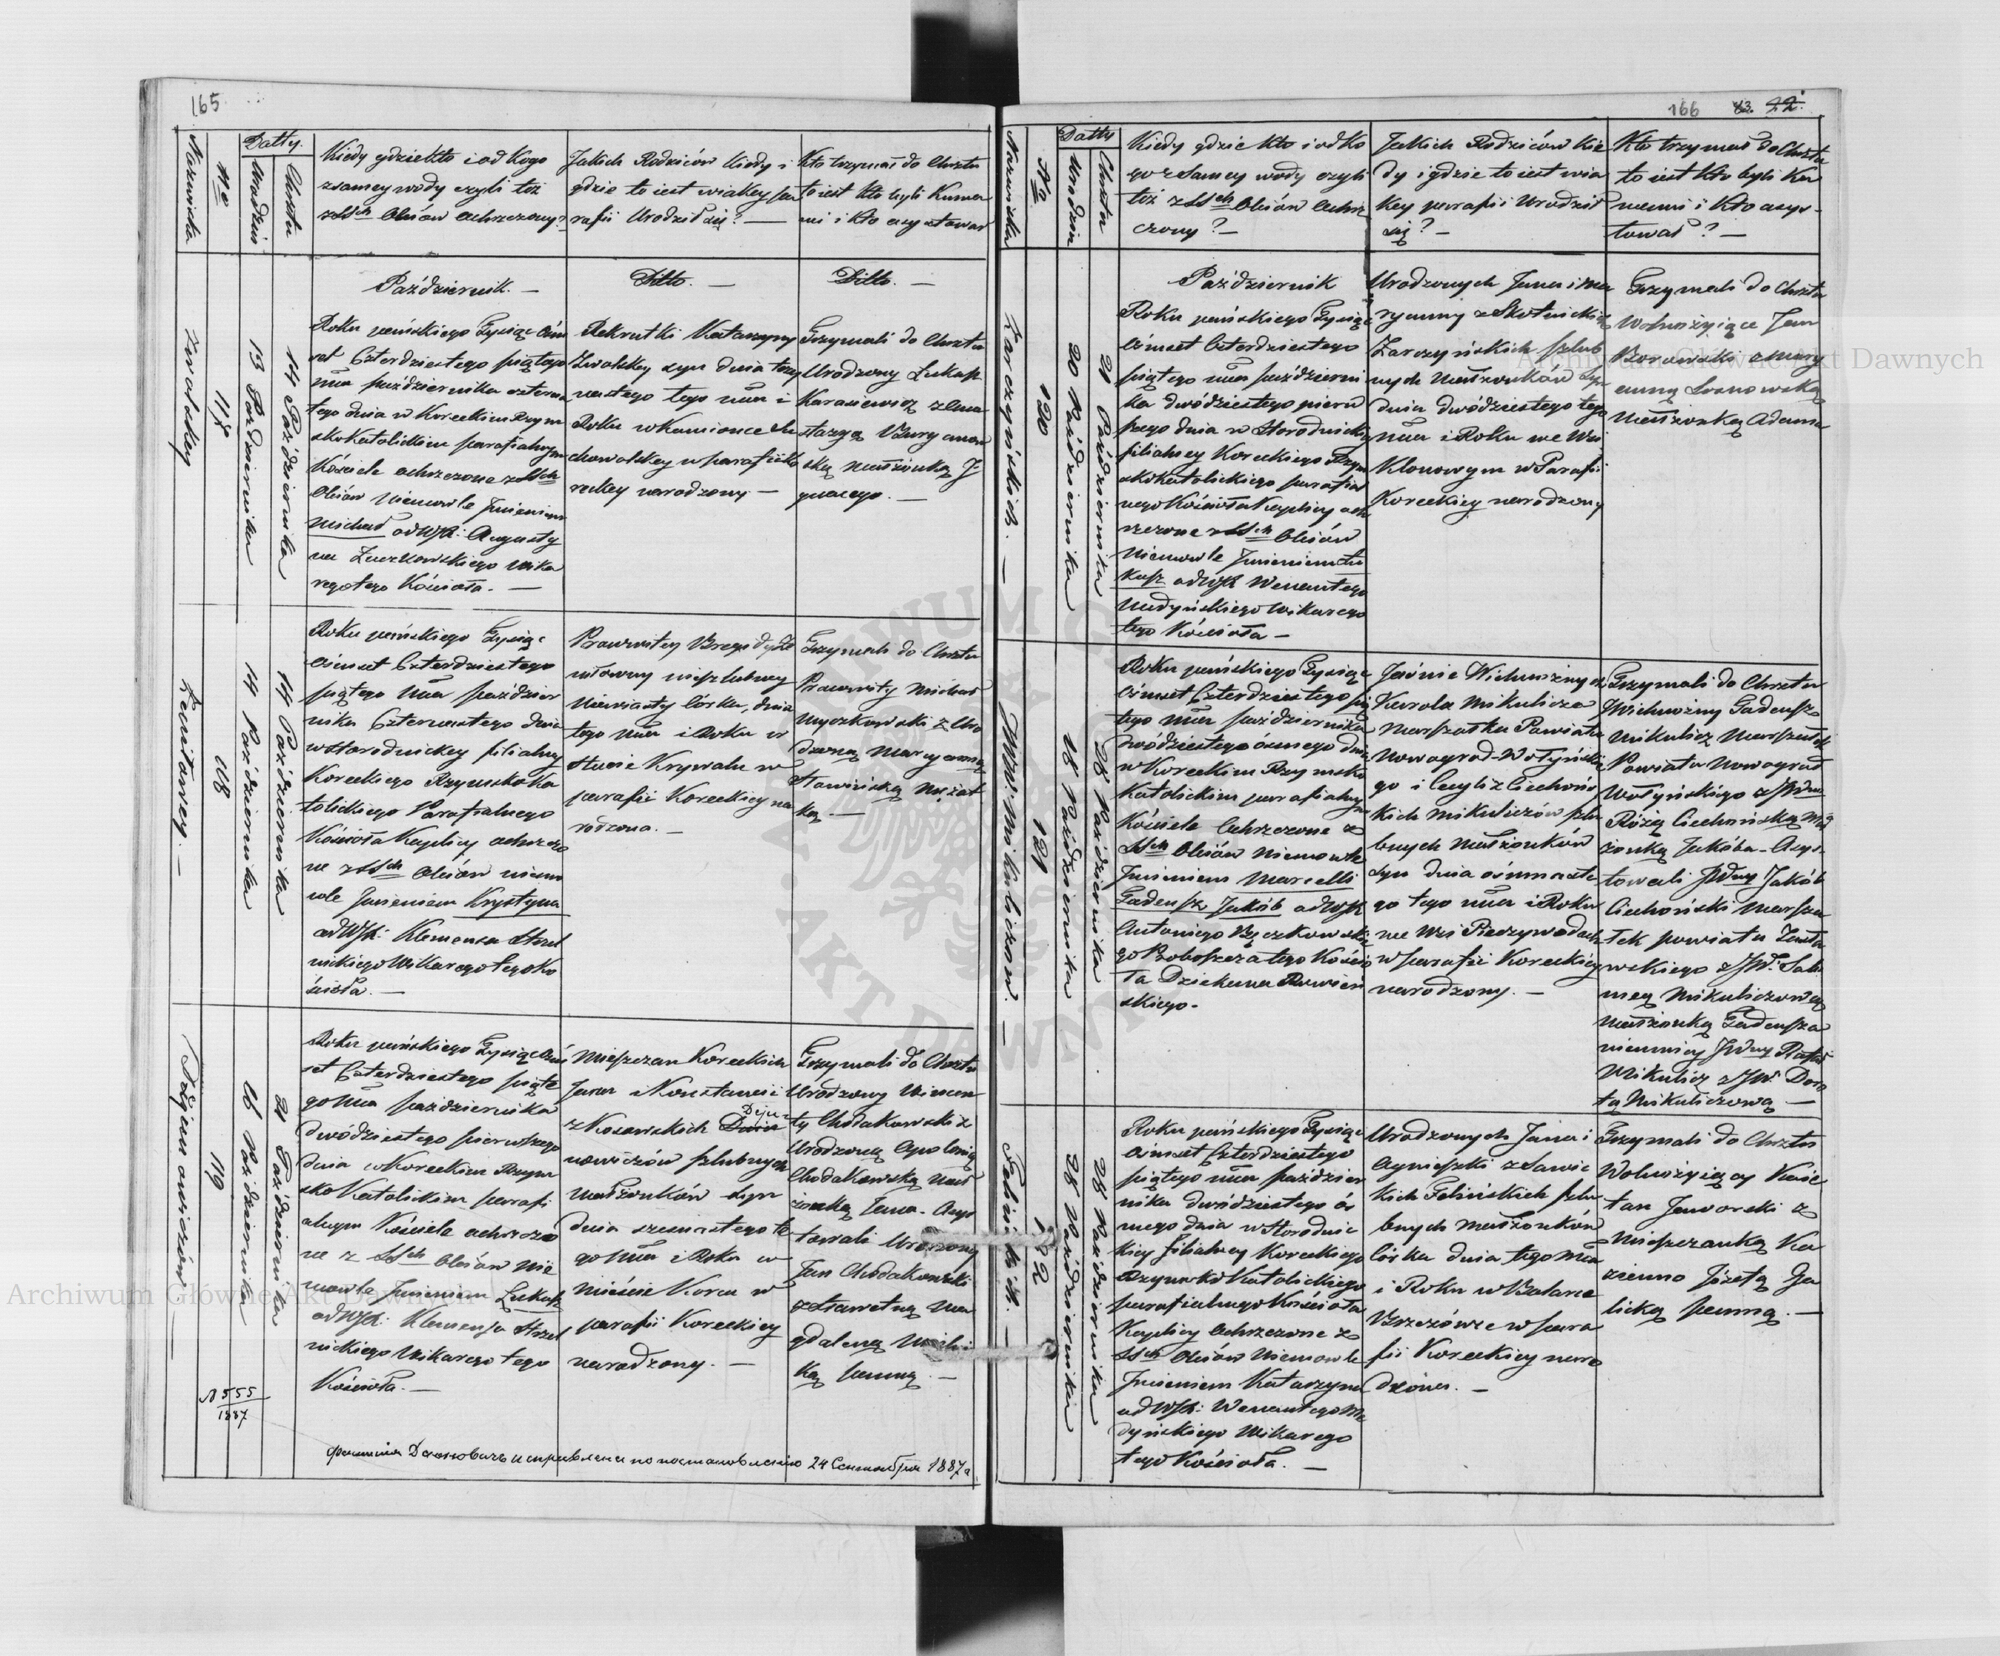 165
Nazwiska
No
Datty.
Urodzin
Chrztu
Kiedy gdzie kto i od kogo
z samey wody czyli też
z SSch Oleiów ochrzczony?
Jakich Rodziców kiedy i
gdzie to iest w iakey pa
rafii Urodził się? —
Kto trzymał do Chrztu
to iest kto byli Kuma
mi i kto asystował
Październik. —
Ditto. —
Ditto. —
117
13 Października
14 Października
Roku pańskiego Tysiąc óśm
set Czterdziestego piątego
mca października czterna
stego dnia w Koreckim Rzym
sko Katolickim parafialnym
Kościele ochrzczone z SSch
Oleiów Niemowle Imieniem
Michał od WJX: Augusty
na
wika
rego tego Kościoła. —
Rekrutki Katarzyny
syn dnia trzy
nastego tego mca i
Roku w Kamionce
w parafii Ko
reckey narodzony —
Trzymali do Chrztu
Urodzony Łukasz
Karasiewicz z Ana
stazyą
ską małżonką J
gnacego. —
118
14 Października
14 Października
Roku pańskiego Tysiąc
ośmset Czterdziestego
piątego mca paździer
nika Czternastego dnia
w Horodnickey filialney
Koreckiego Rzymsko Ka
tolickiego Parafialnego
Kościoła Kaplicy ochrzczo
ne z SSch Oleiów niemo
wle Imieniem Krystyna
od WJX: Klemensa Strzel
nickiego Wikarego tego Ko
ścioła. —
Niewiasty Córka, dnia
tego mca i Roku w
Hucie Krywalu w
parafii Koreckiey na
rodzona. —
Trzymali do Chrztu
Prawowity Michał
Myszkowski z
Maryanną
Mężat
ką. —
119
16 Października
21 Października
Roku pańskiego Tysiąc óśm
set Czterdziestego piąte
go mca października
dwódziestego pierwszego
dnia w Koreckim Rzym
sko Katolickim parafi
alnym Kościele ochrzczo
ne z SSch Oleiów Nie
mowle Imieniem Łukasz
od WJX: Klemensa Strzel
nickiego Wikarego tego
Kościoła. —
Mieszczan Koreckich
Jana i Konstancii
z Kosowskich
nowiczów szlubnych
małżonków syn
dnia szesnastego te
go mca i Roku w
mieście Korcu w
parafii Koreckiey
narodzony. —
Trzymali do Chrztu
Urodzony Wincen
ty Chodakowski z
Urodzoną Apolonią
Chodakowską mał
żonką Jana. Asys
towali Urodzony
Jan Chodakowski
z Ma
gdaleną
ką panną. —
N 555
1887
исправлена по постановленію 24 Сентября 1887 г.
166
Nazwiska
No
Datty
Urodzin
Chrztu
Kiedy gdzie kto i od ko
go z samey wody czyli
też z SSch Oleiów ochrz
czony? —
Jakich Rodziców kie
dy i gdzie to iest w ia
key parafii Urodził
się? —
Kto trzymał do Chrztu
to iest kto byli Ku
mami i kto asys-
tował? —
Październik
Zarczyńskich. —
120
20 Października
21 Października
Roku pańskiego Tysiąc
ośmset Czterdziestego
piątego mca październi
ka dwódziestego pierw
szego dnia w Horodnickey
filialney Koreckiego Rzym
sko Katolickiego parafial
nego Kościoła Kaplicy och
rzczone z SSch Oleiów
Niemowle Imieniem Łu
kasz od WJX Wenantego
Medyńskiego Wikarego
tego Kościoła —
Urodzonych Jana i Ma
ryanny z Skotnickich
Zarczyńskich szlub
nych małżonków syn
dnia dwódziestego tego
mca i Roku we Wsi
Klonowym w Parafii
Koreckiey narodzony
Trzymali do Chrztu
Wolnożyiące Jan
Borowski z Mary
anną
małżonką Adama
JWW: Mikuliczów. —
121
18 Października
28 Października
Roku pańskiego Tysiąc
ośmset Czterdziestego pią
tego mca października
dwódziestego ósmego dnia
w Koreckim Rzymsko
Katolickim parafialnym
Kościele Ochrzczone z
SSch Oleiów Niemowle
Imieniem Marcelli
Tadeusz Jakób od WJX
Antoniego
go Proboszcza tego Kościo
ła Dziekana Rowień
skiego.
Jaśnie Wielmożnych
Karola Mikulicza
Marszałka Powiatu
Nowograd-Wołyńskie
go i Cecylii z Ciechoń
skich Mikuliczów szlu
bnych małżonków
syn dnia ośmnaste
go tego mca i Roku
we Wsi Piszczywodach
w parafii Koreckiey
narodzony. —
Trzymali do Chrztu
Wielmożny Tadeusz
Mikulicz Marszałek
Powiatu Nowograd
Wołyńskiego z JWną
Różą Ciechońską Mał
żonką Jakóba. Asys-
towali JWny Jakób
Ciechoński Marsza
łek powiatu Zasła
wskiego z JW. Salo
meą Mikuliczową
małżonką Tadeusza
niemniey JWny Rafał
Mikulicz z JW. Doro
tą Mikuliczową —
Felińskich. —
122
28 Października
28 Października
Roku pańskiego Tysiąc
ośmset Czterdziestego
piątego mca paździer
nika dwódziestego ós
mego dnia w Horodnic
kiey filialney Koreckiego
Rzymsko Katolickiego
parafialnego Kościoła
Kaplicy Ochrzczone z
SSch Oleiów Niemowle
Imieniem Katarzyna
od WJX: Wenantego Me
dyńskiego Wikarego
tego Kościoła. —
Urodzonych Jana i
Agnieszki z Sawic
kich Felińskich szlu
bnych małżonków
córka dnia tego mca
i Roku w
w para
fii Koreckiey naro
dzona. —
Trzymali do Chrztu
Wolnożyiący Kaie
tan Jaworski z
Mieszczanką Ka
Józefą Ga
licką panną. —
Archiwum Główne Akt Dawnych
Archiwum Główne Akt Dawnych
ARCHIWUM GŁÓWNE AKT DAWNYCH